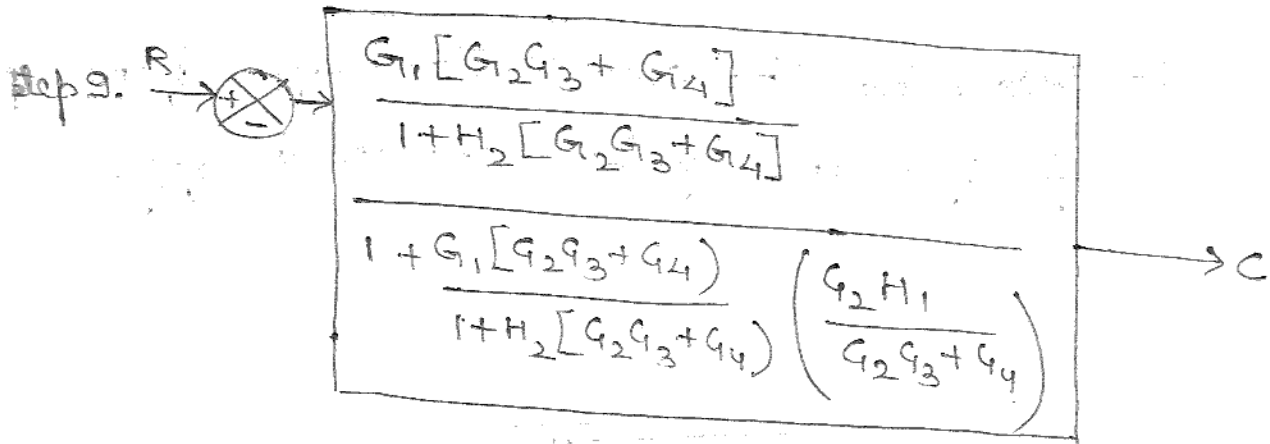 step 9.
R.
+
-
G₁[G₂G₃ + G₄]
1 + H₂[G₂G₃ + G₄]
1 + G₁[G₂G₃ + G₄)
1 + H₂[G₂G₃ + G₄)
(G₂H₁
G₂G₃ + G₄)
C